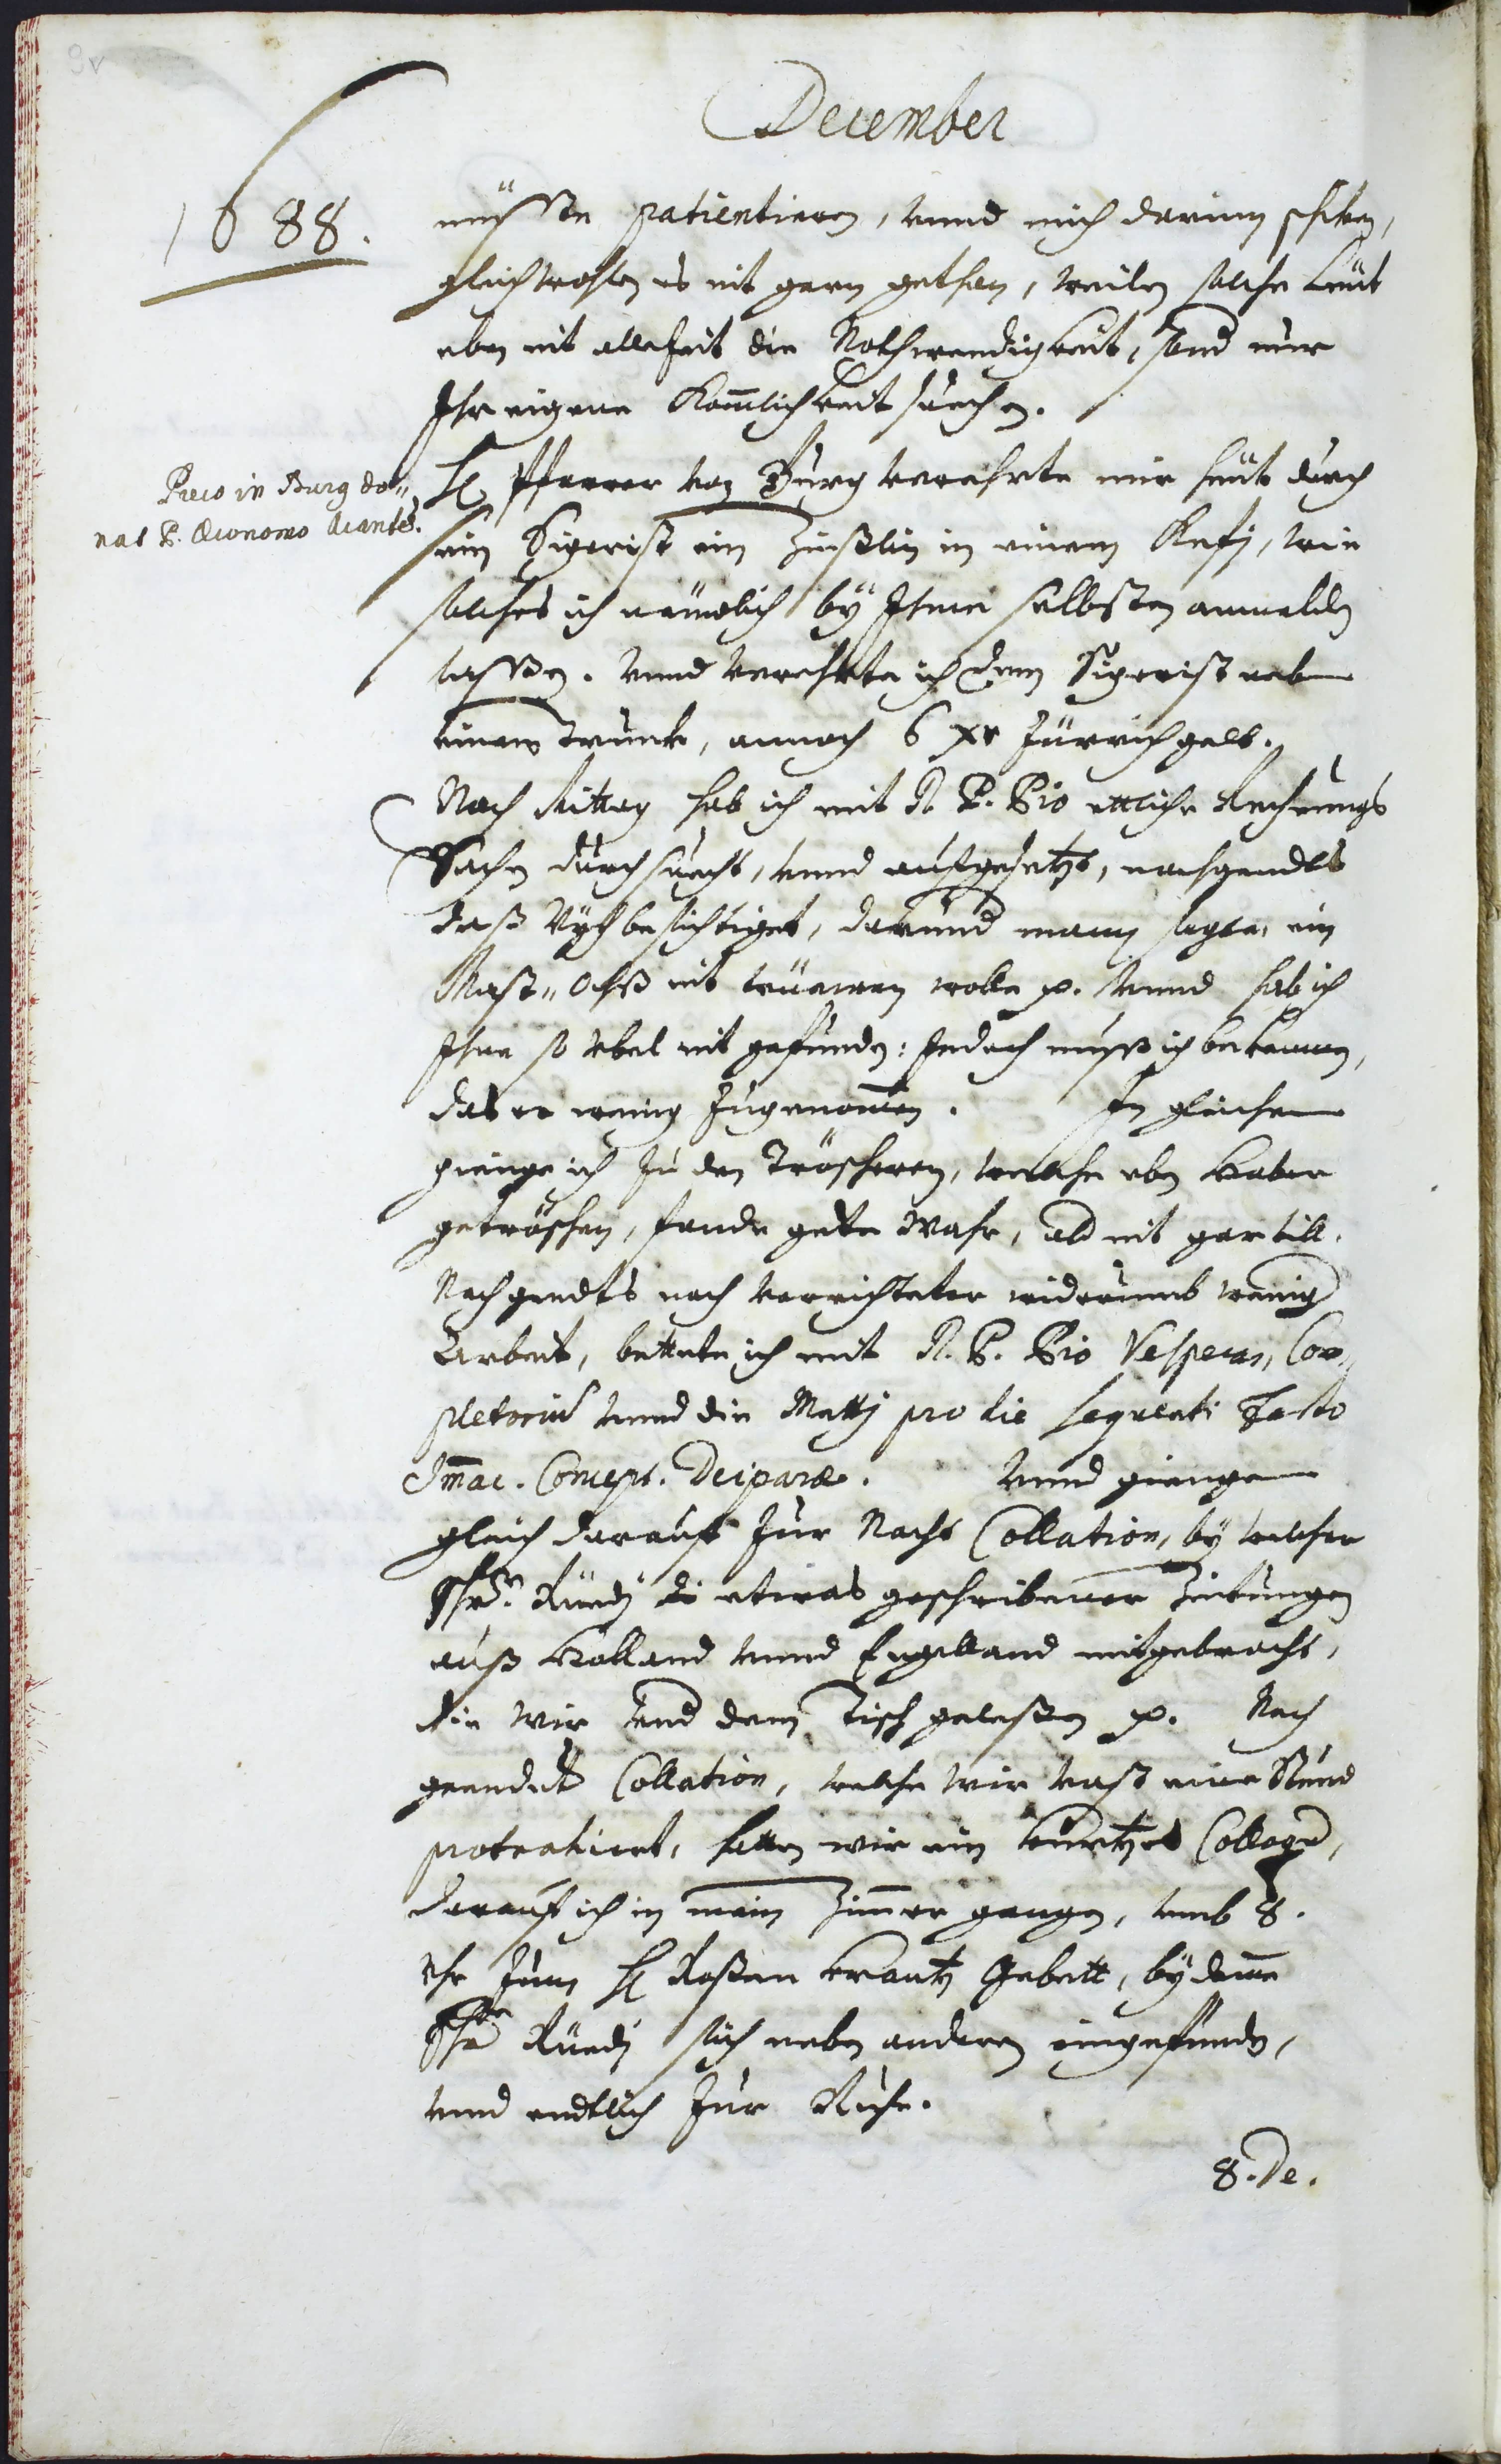 9v
December
1688.
müsste patientieren, vnnd mich darinn schiken,
gleichwohlen es nit gern gethan, weilen solche Leüt
eben nit allezeit die Nothwendigkeit, sond nur
Ihr eigene Komlichkeit suechen.
Praeco in Burg do„
nat P. Œconomo
H Pfarrer von Burg verehrte mir heüt durch
sein Sigerist ein Zinßlin in einem Kefj, wie
solches ich nämblich bÿ Ihme selbsten anmelden
lassen. Vnnd verehrte ich dem Sigerist nebn
einem Trunk, annoch 6 xr Zürrich gelt.
Nach Mittag hab ich mit R. P. Pio ettliche Rechnungs
Sachen durchsuecht, vnnd aufgesetzt, nachgendts
daß Vÿch besichtiget, darund mann sagte, ein
Mast„Ochß nit trüewen wolle p. Vnnd hab ich
Ihne so vbel nit gefunden: Jedoch muß ich bekennen,
das er wenig zugenomen. In gleichem
gienge ich zu den Tröscheren, welche eben Haber
getröschen, fande gute Wahr, ald nit gar vill.
Nachgendts nach verrichteter widerumb wenig
Arbeit, bettete ich mit R. P. Pio Vesperas, Com„
pletoriu vnnd die Mettj pro die sequenti Festo
Imac. Concept. Deiparæ. Vnnd giengen
gleich darauf zur Nacht Collation, bÿ welcher
Rüedj etwas geschribener Zeitungen
auß Holland vnnd Engelland mitgebracht,
die wir vnd dem Tisch geleßen p. Nach
geendet Collation, welche wir vast eine Stund
protrahiert, hatten wir ein kurtzes Colloqu,
darauf ich in mein Zimer gangen, vmb 8.
Vhr zum H Roßen Krantz Gebett, bÿ deme
Rüedj sich neben anderen eingefunden,
vnnd endtlich zur Ruhe.
8. De.